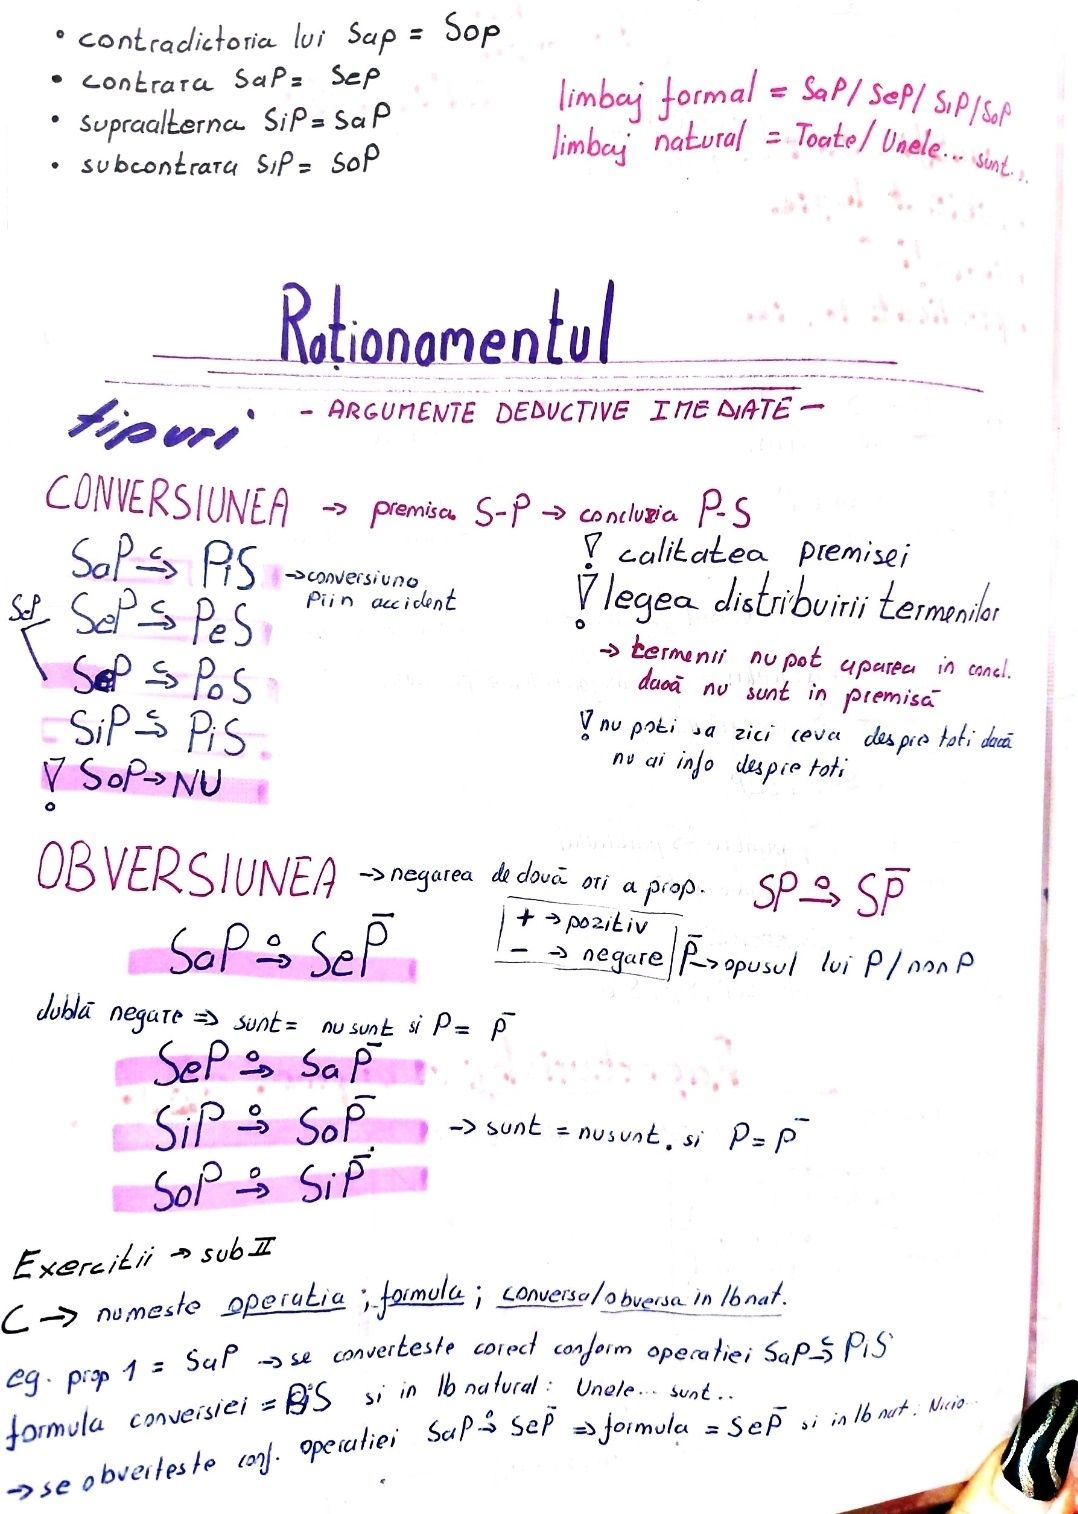 • contradictoria lui Sap = Sop
• contrara SaP= SeP
• supraalterna SiP=SaP
• subcontrara SiP= SoP
limbaj formal = SaP/ SeP/ SiP/SoP
limbaj natural = Toate/ Unele... sunt...
Raționamentul
tipuri
- ARGUMENTE DEDUCTIVE IMEDIATE -
CONVERSIUNEA → premisa S-P → concluzia P-S
SaP c→ PiS → conversiuno
Piin accident
SeP
SeP c→ PeS
SeP c→ PoS
SiP c→ PiS
! SoP→NU
! calitatea premisei
! legea distribuirii termenilor
→ termenii nu pot aparea in concl.
dacă nu sunt in premisă
! nu poti sa zici ceva despre toti dacă
nu ai info despre toti
OBVERSIUNEA → negarea de două ori a prop. SP o→ SP̄
+ → pozitiv
- → negare
P̄→opusul lui P/non P
SaP o→ SeP̄
dublă negare ⇒ sunt= nu sunt si P= P̄
SeP o→ SaP̄
SiP o→ SoP̄ → sunt = nusunt. si P= P̄
SoP o→ SiP̄
Exercitii → sub II
C → numeste operatia ; formula ; conversa/obversa in lb nat.
eg. prop 1 = SaP → se converteste corect conform operatiei SaP c→ PiS
formula conversiei = PiS si in lb natural: Unele... sunt..
→ se obverteste conf. operatiei SaP o→ SeP̄ ⇒ formula = SeP̄ si in lb nat: Nicio...